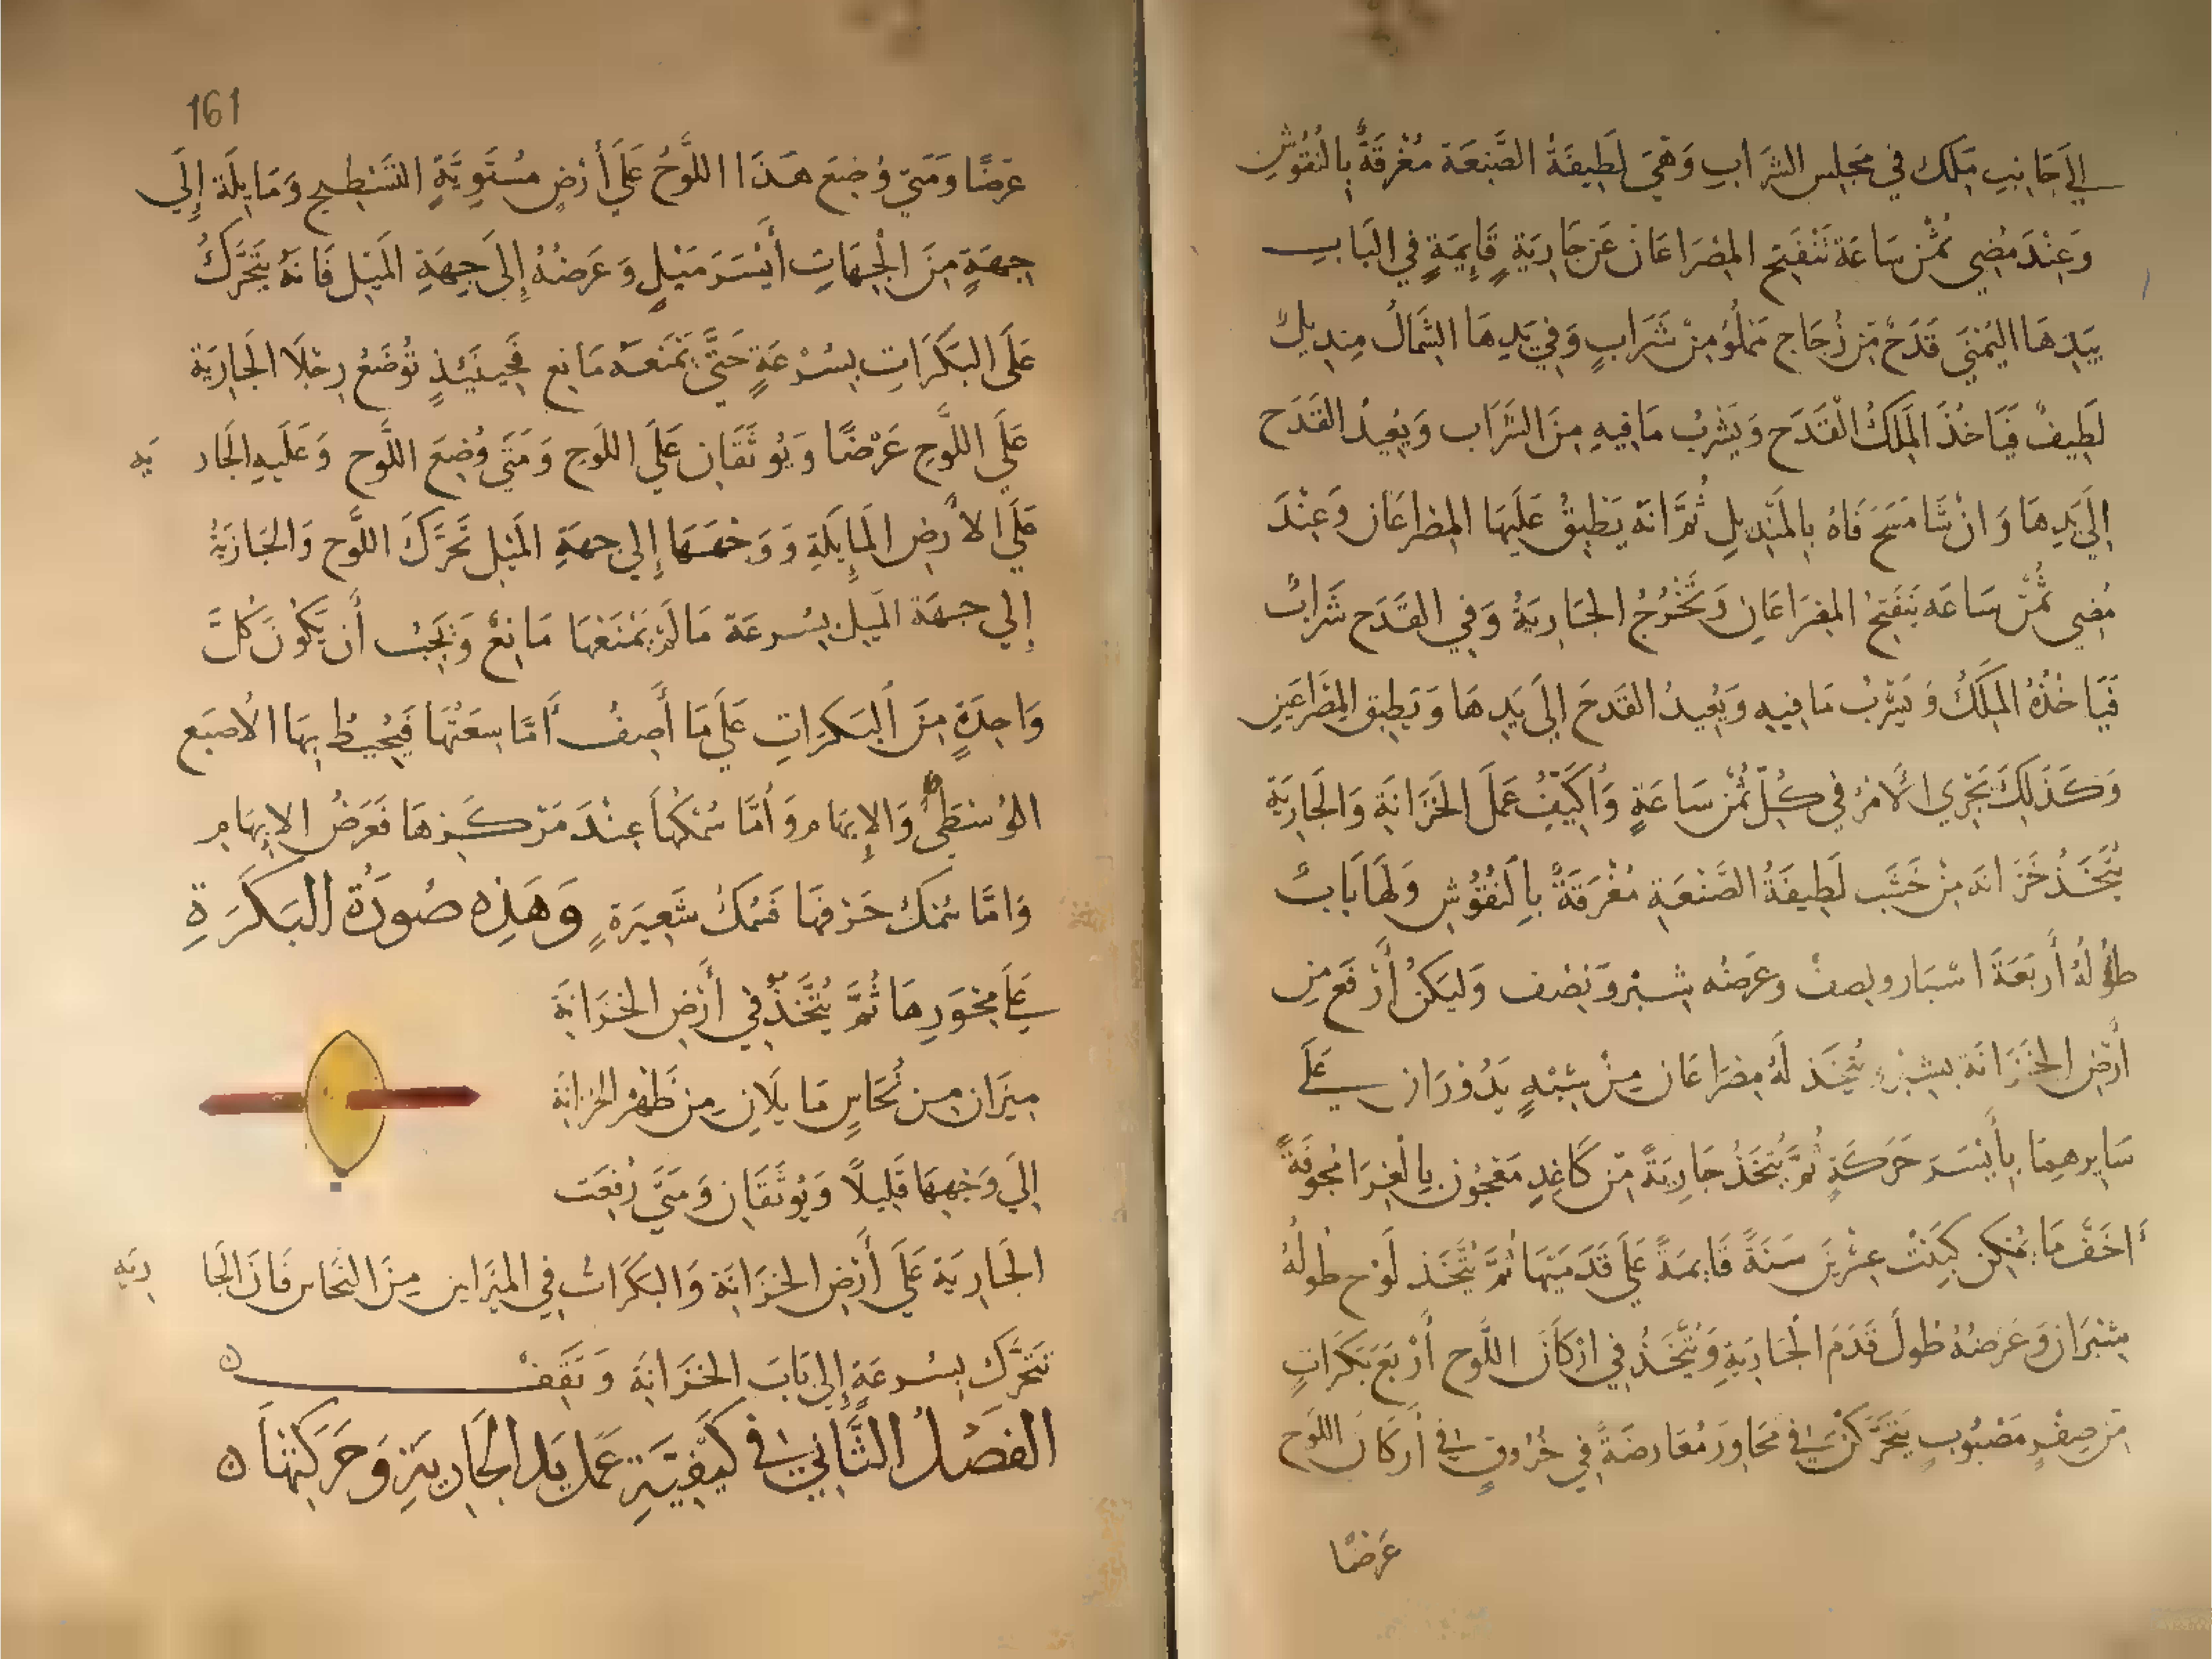 إلى جانب ملك في مجلس الشراب وَهيَ لَطِيفَةُ الصَّنعَة مُغْرقَةٌ بِالنُقُوشِ
وَعِنْدَ مُضِي ثُمْن سَاعَة تَنْفَتِح المِصْرَاعَان عَن جَارِيَةٍ قَايِمَةٍ فِي البَابِ
بِيَدِهَا اليُمْنَي قَدَحٌ مِن زُجَاج مَملُوٌ مِنْ شَرَابٍ وَفِي يَدِهَا الشَمَالُ مِندِيلٌ
لَطِيفٌ فَيَاخُذَ المَلِكُ القَدَح وَيَشْربُ مَا فِيهِ مِنَ الشَرَاب وَيُعِيدُ القَدَح
إِلَي يَدِهَا وَانْ شَا مَسَحَ فَاهُ بِالمَنْدِيلِ ثُمَّ انَهُ يَطِبقُ عَلَيهَا المِصْراعَان وَعِنْدَ
مُضِي ثُمْن سَاعَه يَنفَتِحُ المِصْرَاعَانِ وَتَخْرُجُ الجَارِيَةُ وَفِي القَدَح شَرَابٌ
فَيَاخُذُهُ المَلِكُ وَيَشْرَبُ مَا فِيهِ وَيُعِيدُ القَدحَ إِلَي يَدِهَا وَيَطبِق المِصْرَاعَينِ
وَكَذَلِكَ يَجْرِي الأَمْرُ فِي كُلّ ثُمْن سَاعَةٍ وَأُكَيِّفُ عَمَلَ الخَزَانَة وَالجَارِيَة
يُتَّخَذُ خَزَانَه مِنْ خَشَب لَطِيفَةُ الصَّنْعَةِ مُغْرَقَةٌ بِالنُقُوش وَلَهَا بَابٌ
طُولُهُ أَربَعَةَ اشبَار ونِصفْ وعَرَضُه شِبْر وَنِصْف وَليَكنْ أَرْفَع مِن
أَرْضِ الخَزَانَة بشِبْرٍ يُتَّخَذ لَهُ مِصْرَاعَان مِنْ شِبْهٍ يَدُورَان عَلَي
سَايِرهِمَا بِأَيْسَر حَرَكَةٍ ثُمَّ يُتَخَذُ جَارِيَةٌ مِن كَاغِدٍ مَعْجُون بِالغِرَا مُجوفَةٌ
أَخَفّ مَا يُمْكِن كَبِنْت عِشْرِينَ سَنَةً قَايِمَةً عَلَي قَدَمَيْهَا ثُمَّ يُتَّخَذ لَوْح طُولُهُ
شِبْرَان وَعَرضُهُ طُولَ قَدَم الجَارِيَةِ وَيُتَّخَذُ فِي ارْكَانَ اللَّوح أَرْبَعَ بَكَرَاتٍ
مِن صِفْرٍ مَصْبُوبٍ يَتَحَرَّكْنَ فِي مَحَاورَ مُعَارضَةً فِي خُرُوقٍ فِي أَرْكَان اللَّوح
عَرضًا
161
عَرَضًا وَمَتَي وُضِعَ هَذَا اللَّوحُ عَلَي أَرْضٍ مُسْتَوِيَةِ التَسْطِيحِ وَمَايلَة إِلَي
جِهَةٍ مِنَ الْجِهَاتِ أَيْسَرَ مَيْلٍ وَعَرَضُهُ إِلَى جِهَةِ المَيْلِ فَانَهُ يَتَحَرَّكُ
عَلَى البَكَرَاتِ بِسُرْعَةٍ حَتَّي يَمْنَعهُ مَانِع فَحِينَئِذٍ تُوضَعُ رِجْلَا الجَارِيَة
عَلَي اللَّوحِ عَرْضًا وَيُوثَقَان عَلَي اللَوح وَمَتَي وُضِعَ اللَّوح وَعَلَيهِ الجَاريَه
عَلَي الأَرضِ المَايِلَةِ وَوَجْهَهَا إِلي جهَةِ المَيْل تَحَرَّكَ اللَّوح وَالجَارِيَةُ
إِلي جهَة المَيل بسُرعَة مَا لَمْ يَمْنَعْهَا مَانِعٌ وَيَجبُ أَن يَكُونَ كُلَّ
وَاحِدَةٍ مِنَ الْبَكرَاتِ عَلَي مَا أَصِفُ أَمَّا سِعَتُهَا فَيُحِيطُ بِهَا الاُصبَع
الوُسْطَي وَالإِبهَام وَأَمَّا سُمْكُهَا عِنْدَ مَرْكَزهَا فَعَرَضُ الابهَام
وَامَّا سُمْكُ حَرْفهَا فَسُمْكُ شَعِيرَةٍ وَهَذِه صُورَةُ البَكَرَةِ
عَلَي مِحْوَرِهَا ثُمَّ يُتَّخَذُ فِي أَرْضِ الخَزَانَة
مِيزَان مِن نُحَاسٍ مَايلَانِ مِن ظَهْر الخزَانَة
إِلَي وَجْهِهَا قَلِيلًا وَيُوثَقَان وَمَتَي رُفِعَت
الجَارِيَة عَلَي أَرْضِ الخَزَانَة وَالبَكَرَاتُ فِي المِيزَابين مِنَ النُحَاس فَانَّ الجَاريَه
تَتَحَرَّك بِسُرعَةٍ إِلي بَابَ الخَزَانَة وَتَقِفْ ه
الفَصْلُ الثَّانِي فِي كَيْفِيَّةِ عَمَل يَد الجَارِيَةِ وَحَركَتهَا ه